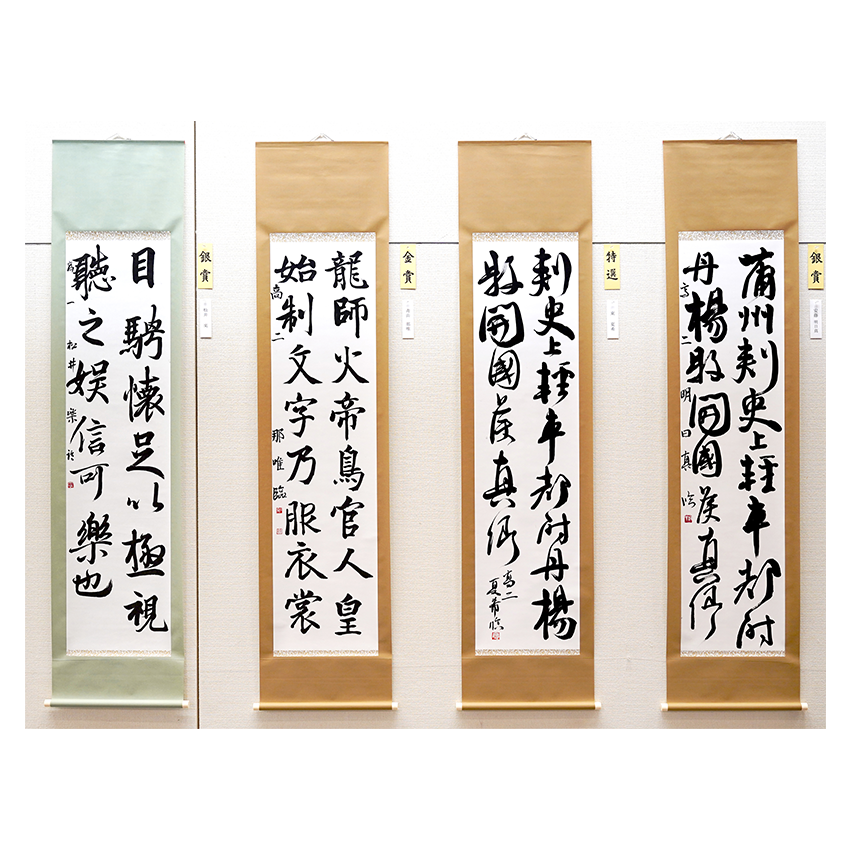 銀賞
蒲州刺史上輕車都尉
丹楊縣開國侯真卿
高二 明日真 臨
特選
刺史上輕車都尉丹楊
縣開國侯真卿
高二
夏希臨
金賞
龍師火帝鳥官人皇
始制文字乃服衣裳
高二 那唯臨
銀賞
目騁懷足以極視
聽之娛信可樂也
高一 松井